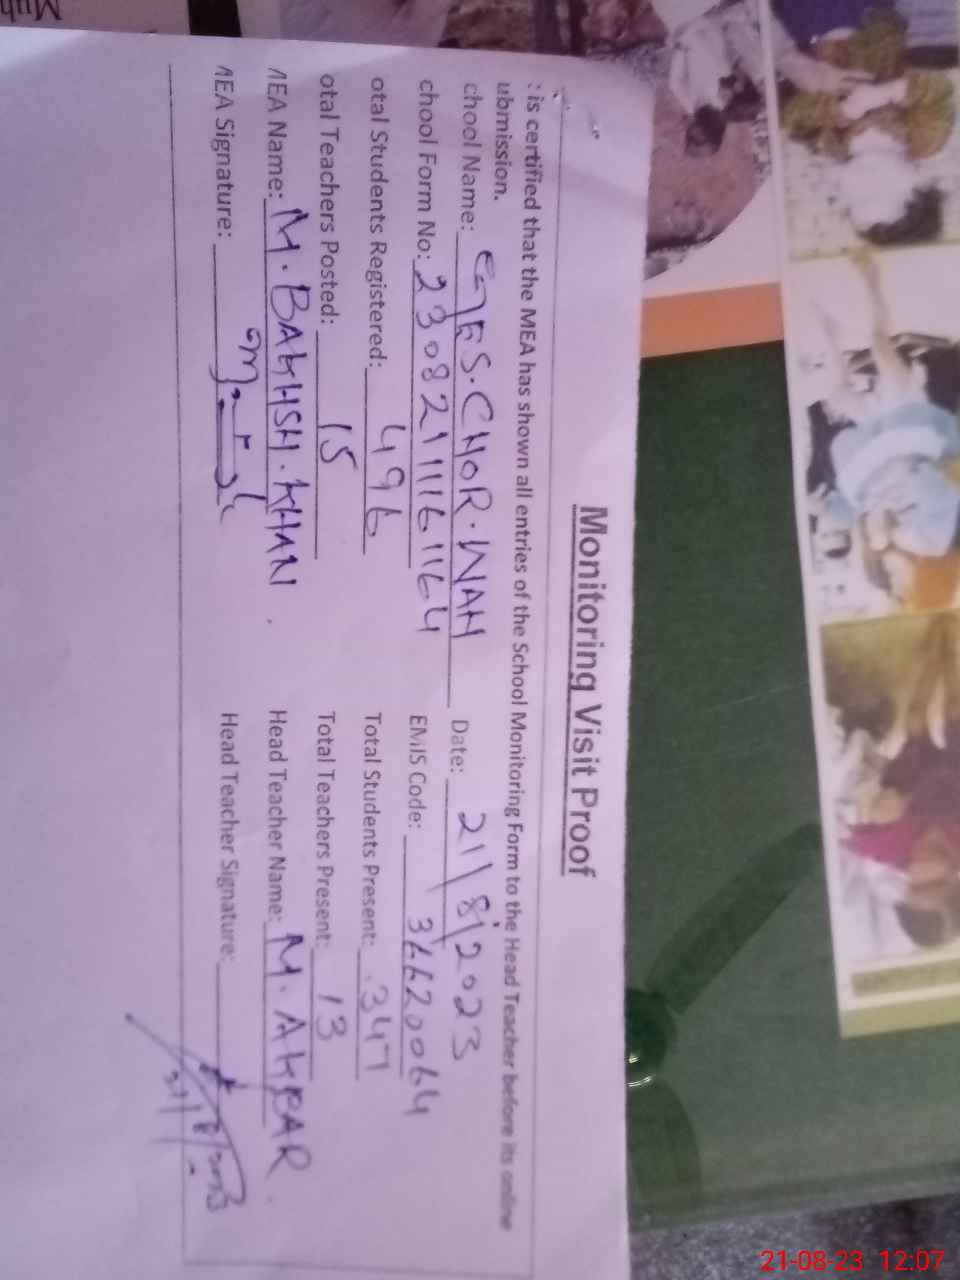 Monitoring Visit Proof
: is certified that the MEA has shown all entries of the School Monitoring Form to the Head Teacher before its online
ubmission.
chool Name: GES. CHOR. WAH Date: 21/8/2023
chool Form No: 23082111161164 EMIS Code: 36620064
otal Students Registered: 496 Total Students Present: 347
otal Teachers Posted: 15 Total Teachers Present: 13
MEA Name: M. BAKHSH. KHAN. Head Teacher Name: M. AKBAR.
MEA Signature: Head Teacher Signature:
21-08-23 12:07